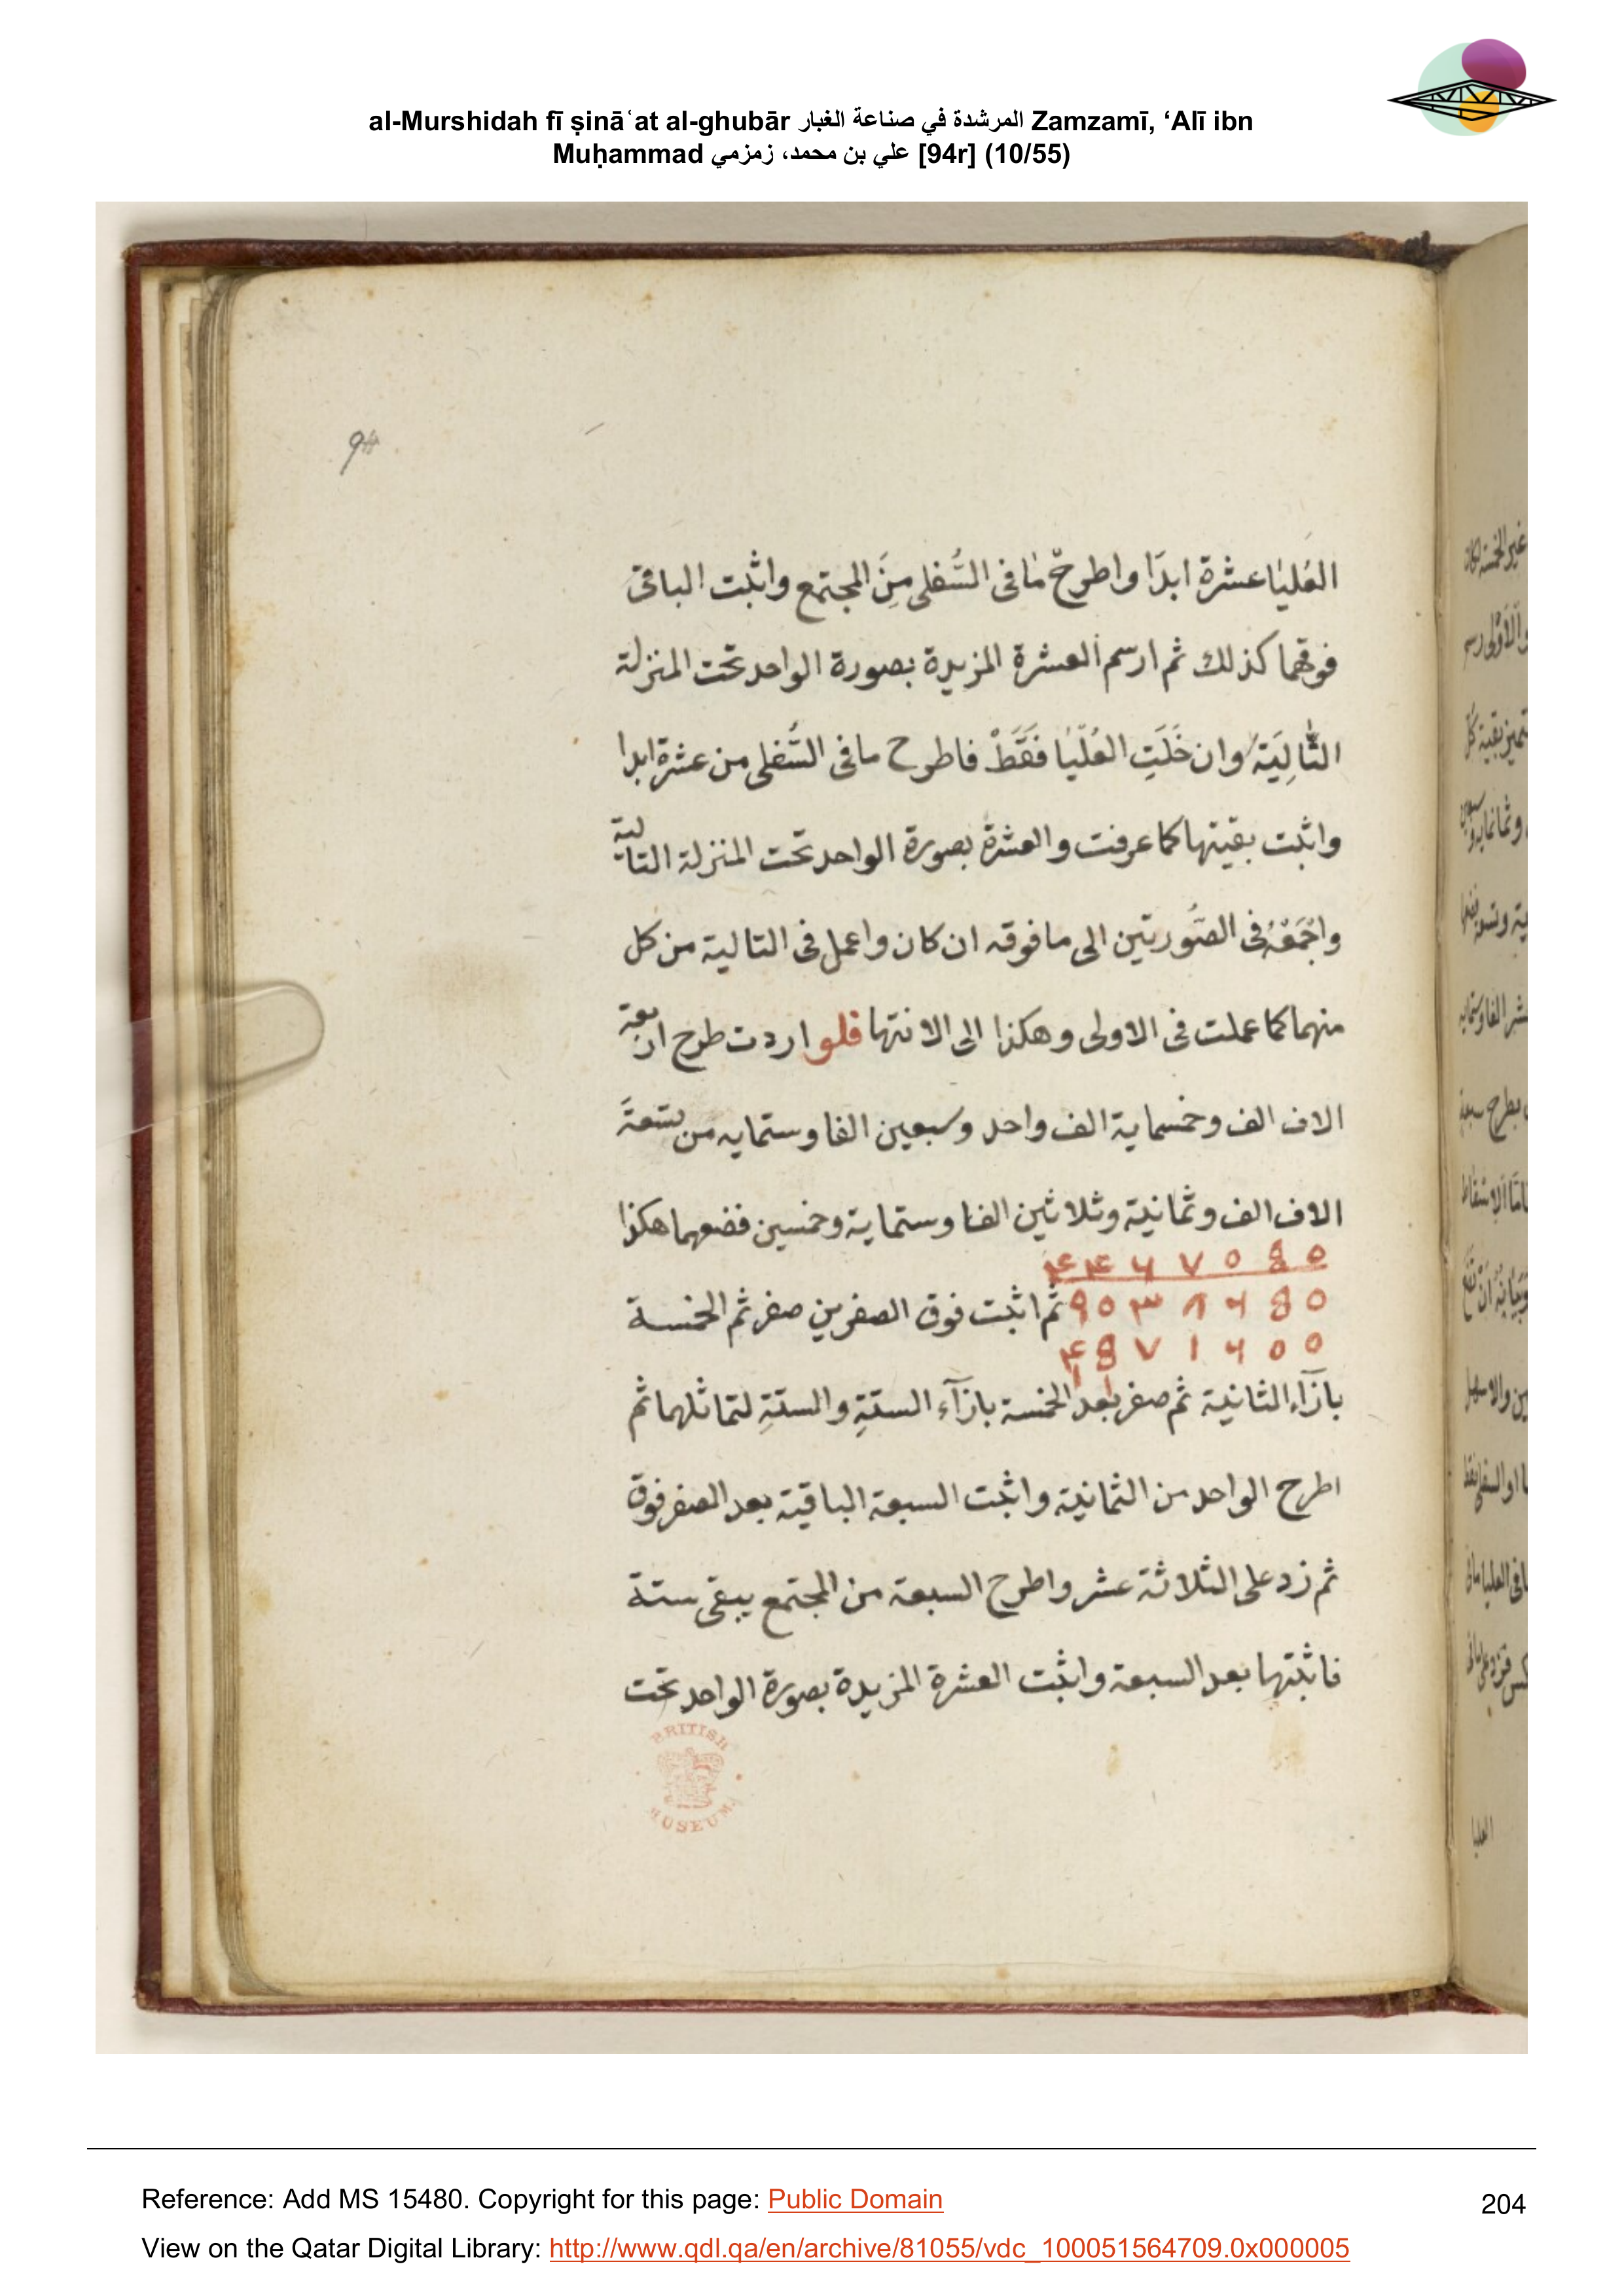 al-Murshidah fī ṣināʿat al-ghubār المرشدة في صناعة الغبار Zamzamī, ‘Alī ibn
Muḥammad علي بن محمد، زمزمي [94r] (10/55)
94
العُليَا عشرة ابدًا واطرحْ مَا فى السُّفلى مِنَ المجتمع واثبت الباقى
فوقهما كذلك ثم ارسم العشرة المزيدة بصورة الواحد تحت المنزلة
التَّالِيَة وان خَلَتِ العُلْيَا فَقَطْ فاطرح مافى السُّفلى من عشرة ابدا
واثبت بقيتها كما عرفت والعشرة بصورة الواحد تحت المنزلة التالية
واجْمَعْهُ فى الصُّورتين الى مافوقه ان كان واعمل فى التالية من كل
منهما كما عملت فى الاولى وهكذا الى الانتها فلو اردت طرح اربعة
الاف الف وخمسماية الف واحد وسبعين الفا وستمايه من تسعة
الاف الف وثمانية وثلاثين الفا وستماية وخمسين فضعهما هكذا
۴۴ ۶ ۷ ٥ 8 ٥
9٥ ۳ ۸ ۶ 8 ٥ ثم اثبت فوق الصفرين صفر ثم الخمسة
۴8 ۷ ۱ ۶ ٥ ٥
بازآء الثانية ثم صفر بعد الخمسة بازآء الستةِ والستةِ لتماثلهما ثم
اطرح الواحد من الثمانية واثبت السبعة الباقية بعد الصفر فوق
ثم زد على الثلاثة عشر واطرح السبعة من المجتمع يبقى ستة
فاثبتها بعد السبعة واثبت العشرة المزيدة بصورة الواحد تحت
BRITISH MUSEUM
العليا
Reference: Add MS 15480. Copyright for this page: Public Domain
204
View on the Qatar Digital Library: http://www.qdl.qa/en/archive/81055/vdc_100051564709.0x000005